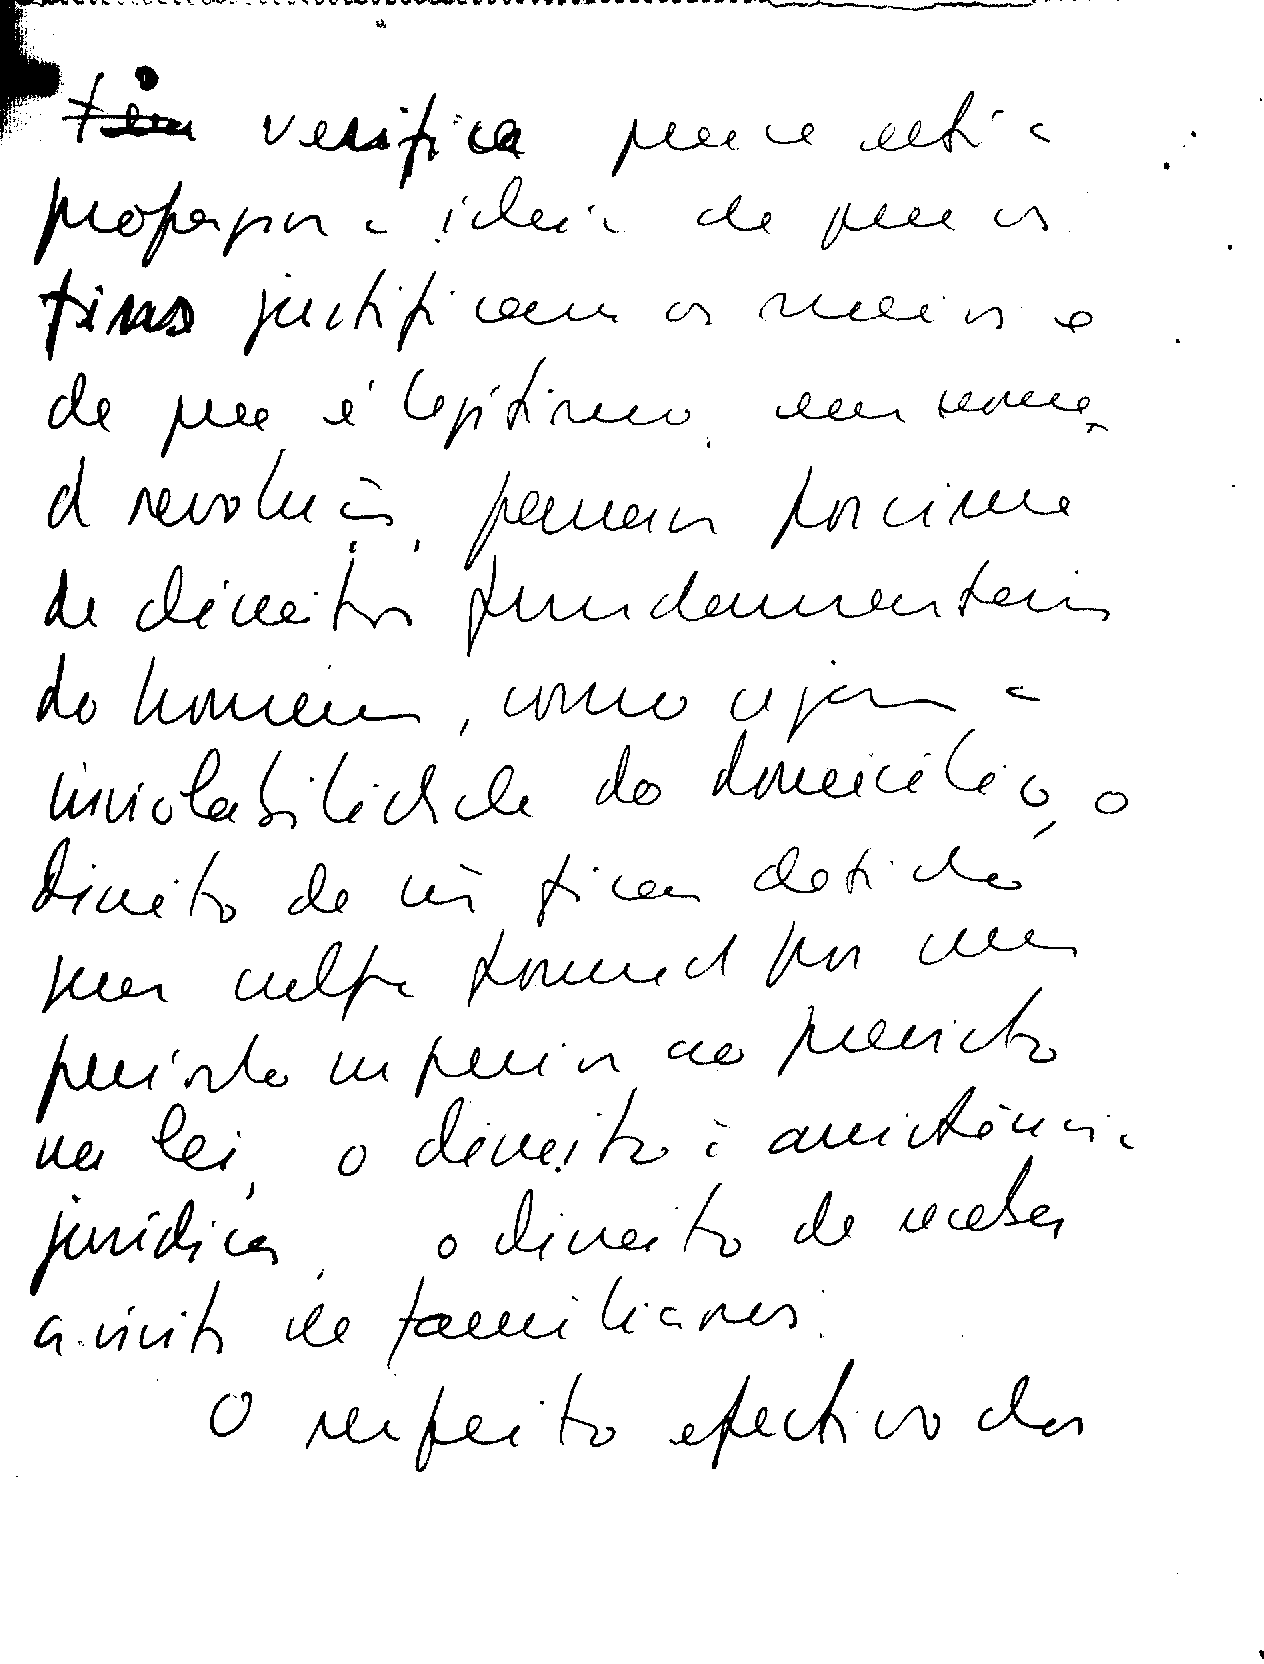 têm verifica que se está a
propagar a ideia de que os
fins justificam os meios e
de que é legítimo, em nome
d revolução, passar por cima
de direitos fundamentais
do homem, como sejam a
inviolabilidade do domicílio, o
direito de não ficar detido
sem culpa formad por um
período superior ao previsto
na lei, o direito à assistência
jurídica, o direito de receber
a visita de familiares.
O respeito efectivo dos